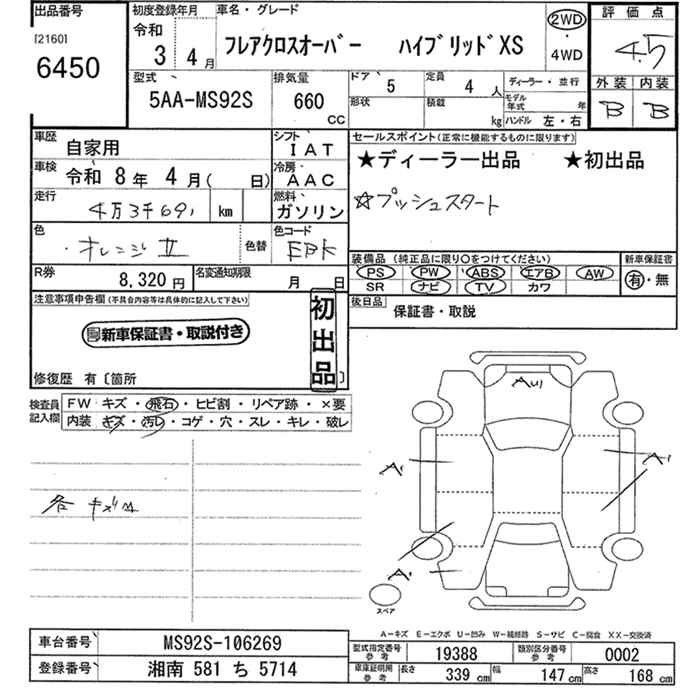 出品番号
[2160]
6450
初度登録年月
令和
3年 4月
車名・グレード
フレアクロスオーバー ハイブリッドXS
2WD
・
4WD
評価点
4.5
外装 内装
B B
型式
5AA-MS92S
排気量
660
CC
ドア 5
定員 4人
形状
積載 kg
ディーラー・並行
モデル年式 年
ハンドル 左・右
車歴 自家用
シフト IAT
車検 令和 8年 4月( 日)
冷房 AAC
走行 4万3千691 km
燃料 ガソリン
色 オレンジII
色替
色コード EBK
R券 8,320円
名変通知期限 月 日
セールスポイント(正常に機能するものに限ります)
★ディーラー出品 ★初出品
☆プッシュスタート
装備品(純正品に限り○をつけてください)
PS PW ABS エアB AW
SR ナビ TV カワ
新車保証書
有・無
後日品 保証書・取説
注意事項申告欄(不具合内容等は具体的に記入して下さい)
新車保証書・取説付き
初出品
修復歴 有〔箇所 〕
検査員記入欄
FW キズ・飛石・ヒビ割・リペア跡・×要
内装 キズ・汚レ・コゲ・穴・スレ・キレ・破レ
各 キズ小
AU1
A1
A1
A1
スペア
A-キズ E-エクボ U-凹み W-補修跡 S-サビ C-腐食 XX-交換済
車台番号 MS92S-106269
登録番号 湘南 581 ち 5714
型式指定番号 参考 19388
類別区分番号 参考 0002
車庫証明用 参考 長さ 339 cm 幅 147 cm 高さ 168 cm